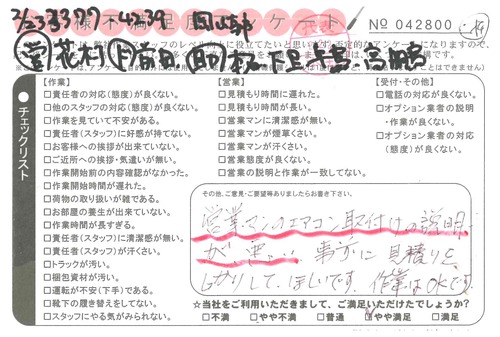 様不満足度アンケート
No 042800
●チェックリスト
【作業】
□責任者の対応(態度)が良くない。
□他のスタッフの対応(態度)が良くない。
□作業を見ていて不安がある。
□責任者(スタッフ)に好感が持てない。
□お客様への挨拶が出来ていない。
□ご近所への挨拶・気遣いが無い。
□作業開始前の内容確認がなかった。
□作業開始時間が遅れた。
□荷物の取り扱いが雑である。
□お部屋の養生が出来ていない。
□作業時間が長すぎる。
□責任者(スタッフ)に清潔感が無い。
□責任者(スタッフ)が汗さい。
□トラックが汚い。
□梱包資材が汚い。
□運転が不安(下手)である。
□靴下の履き替えをしてない。
□スタッフにやる気がみられない。
【営業】
□見積もりに遅れた。
□見積もり時間が長い。
□営業マンに清潔感が無い。
□営業マンが煙草くさい。
□営業マンが汗さい。
□営業態度が良くない。
□営業の説明と作業が一致してない。
【受付・その他】
□電話の対応が良くない。
□オプション業者の説明
・作業が良くない。
□オプション業者の対応
(態度)が良くない。
その他、ご意見・ご要望等ありましたらお書き下さい。
営業マンのエアコン取付けの説明
が、悪い。事前に見積りを
しっかりして、ほしいです。作業はOKです。
☆当社をご利用いただきまして、ご満足いただけたでしょうか?
□不満 □やや不満 □普通 □やや満足 □満足